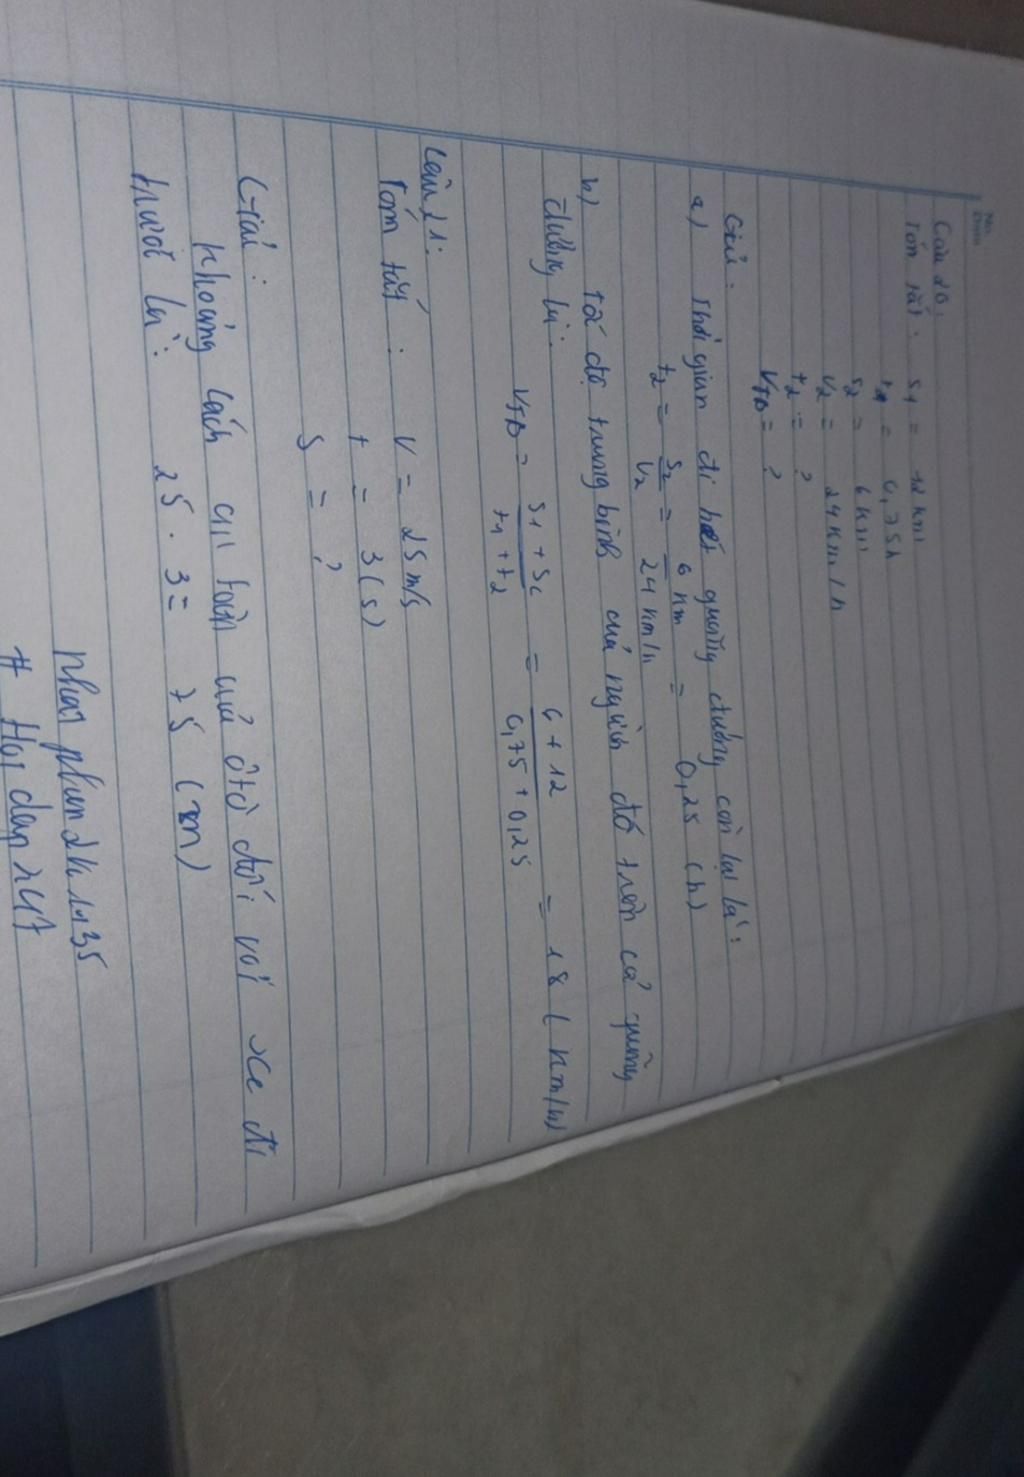 Câu 20:
Tóm tắt: S1 = 12 km
t1 = 0,75h
S2 = 6 km
V2 = 24 km/h
t2 = ?
VTB = ?
Giải.
a) Thời gian đi hết quãng đường còn lại là:
t2 = S2/V2 = 6 km/24 km/h = 0,25 (h)
b) tốc độ trung bình của người đó trên cả quãng
đường là:
VTB = S1 + S2/t1 + t2 = 6 + 12/0,75 + 0,25 = 18 (km/h)
Câu 21:
Tóm tắt: V = 25 m/s
t = 3 (s)
S = ?
Giải:
Khoảng cách an toàn của ôtô đối với xe đi
trước là: 25 . 3 = 75 (m)
# Hoi dap 247